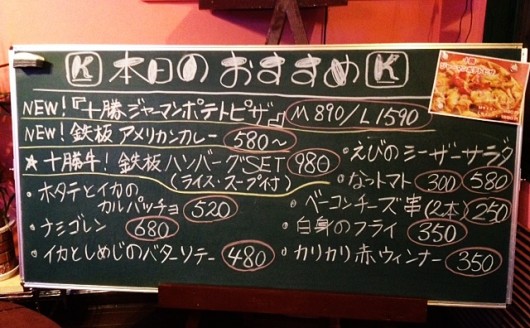 K 本日のおすすめ K
NEW!『十勝ジャーマンポテトピザ』 M890/L1590
NEW! 鉄板 アメリカンカレー 580〜
★十勝牛! 鉄板ハンバーグSET 980
(ライス・スープ付)
・ホタテとイカのカルパッチョ 520
・ナミゴレン 680
・イカとしめじのバターソテー 480
・えびのシーザーサラダ 580
・なっトマト 300
・ベーコンチーズ串(2本) 250
・白身のフライ 350
・カリカリ赤ウィンナー 350